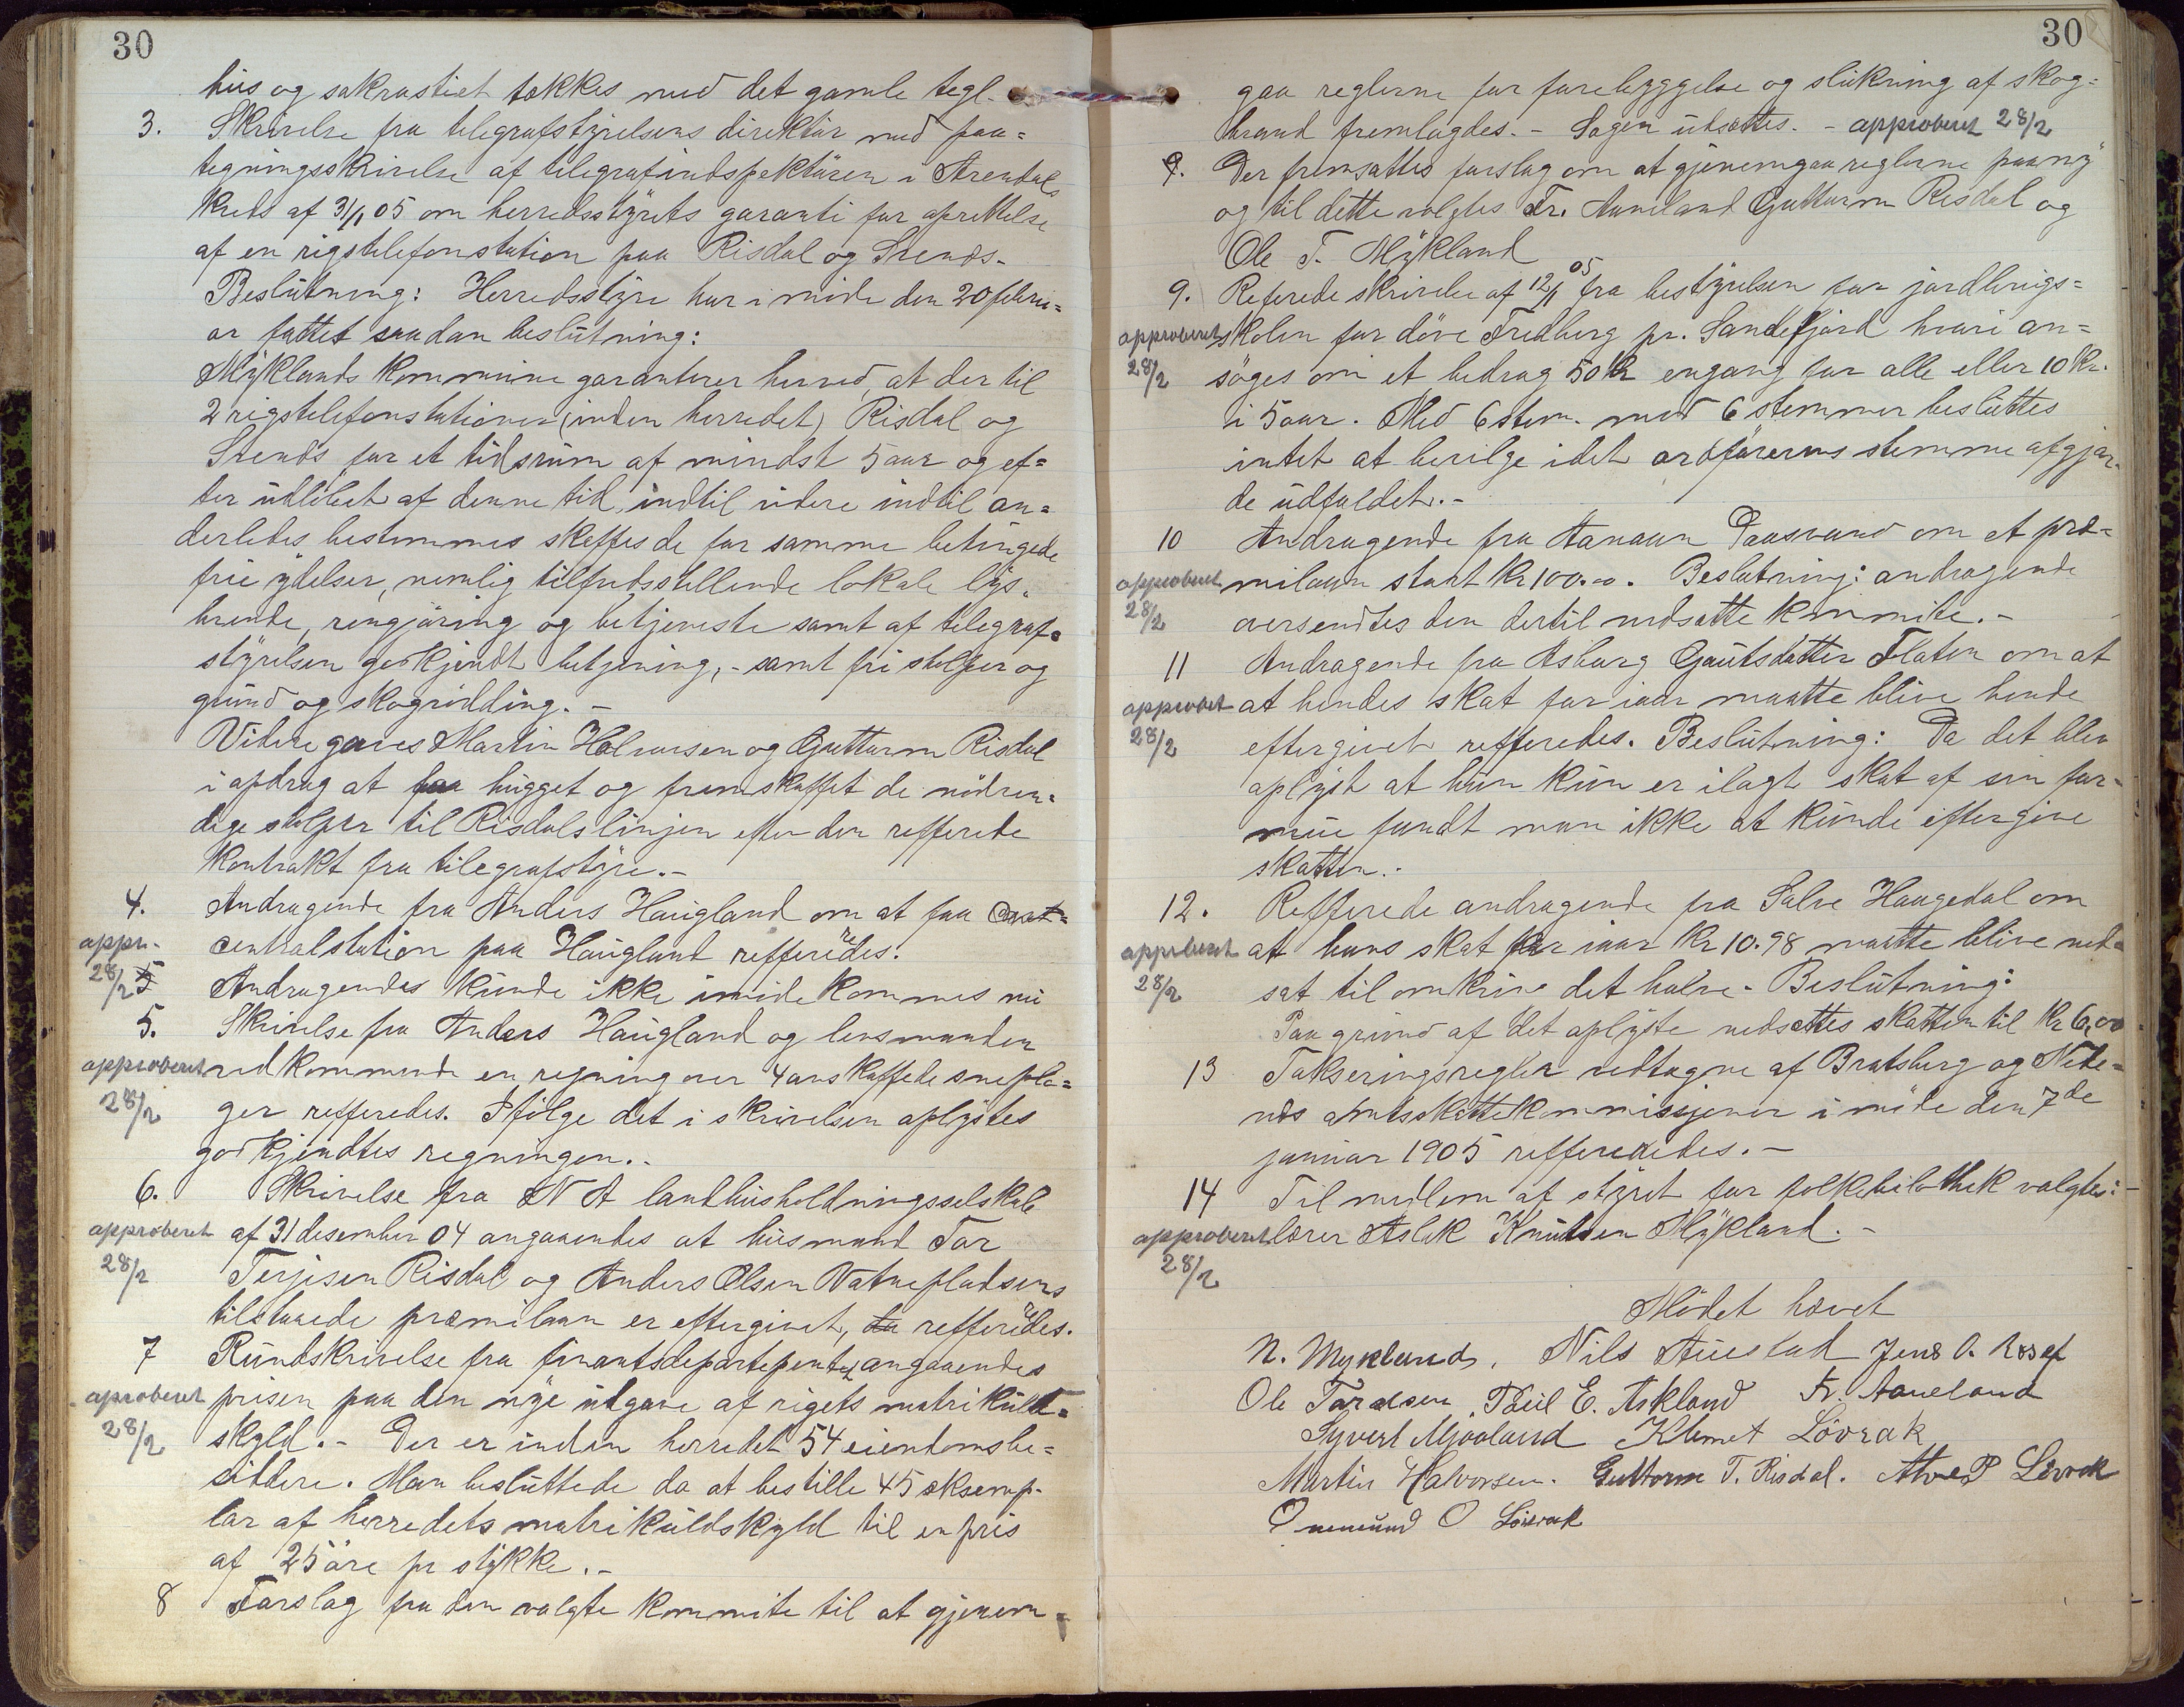 30
hus og sakrastiet tækkes med det gamle tegl.
3. Skrivelse fra telegrafstyrelsens direktør med paa=
tegningsskrivelse af telegrafindspektøren i Arendals
kreds af 31/1 05 om herredsstyrets garanti for oprettelse
af en rigstelefonstation paa Risdal og Svends.
Beslutning: Herredsstyre har i møde den 20 febru=
ar fattet saadan beslutning:
Myklands kommune garanterer herved, at der til
2 rigstelefonstationer (inden herredet) Risdal og
Svends for et tidsrum af mindst 5 aar og ef=
ter udløbet af denne tid, indtil videre indtil an=
derledes bestemmes skaffes de for samme betingede
frie ydelser, nemlig tilfredsstillende lokale lys.
brende, rengjøring og betjeneste samt af telegraf=
styrelsen godkjendt betjening, - samt fri stolper og
grund og skogrødding. -
Videre gaves Martin Halvorsen og Guttorm Risdal
i opdrag at faa hugget og fremskaffet de nødven=
dige stolper til Risdalslinjen efter den refferede
kontrakt fra telegrafstyre. -
4. Andragende fra Anders Haugland om at faa
appr. centralstation paa Haugland refferedes.
28/2 Andragendes kunde ikke imødekommes nu
5. Skrivelse fra Anders Haugland og lensmanden
approberet vedkommende en regning over 4 anskaffede snepl=
28/2 ger refferedes. Ifølge det i skrivelsen oplystes
godkjendtes regningen. -
6. Skrivelse fra N A landhusholdningsselskab
approberet af 31 desember 04 angaaendes at husmand Tor
28/2 Terjesen Risdal og Anders Olsen Vatnepladsens
tilstaaede præmilaan er eftergivet, da refferedes.
7 Rundskrivelse fra finantsdepartementet angaaendes
aproberet prisen paa den nye utgave af rigets matrikult=
28/2 skyld. - Der er inden herredet 54 eiendomsbe=
siddere. Man besluttede da at bestille 45 eksemp-
lar af herredets matrikuldskyld til en pris
af 25 øre pr stykke. -
8 Forslag fra den valgte kommite til at gjenem=
30
gaa reglerne for forebyggelse og slukning af skog=
brand fremlagdes. - Sagen udsættes. - approberet 28/2
9. Der fremsattes forslag om at gjenemgaa reglerne paany
og til dette valgtes Fr. Aaneland Guttorm Risdal og
Ole T. Mykland
9. Referede skrivelse af 12/1 05 fra bestyrelsen for jordbrugs=
approberet skolen for døve Fredberg pr. Sandefjord hvori an=
28/2 søges om et bedrag 50 kr engang for alle eller 10 kr.
i 5 aar. Med 6 stem. mod 6 stemmer besluttes
intet at bevilge idet ordførerens stemme afgjør-
de udfaldet. -
10 Andragende fra Aanaun Daasvand om et præ-
approberet milaan stort kr 100.00. Beslutning: andragende
28/2 oversendtes den dertil nedsatte kommite. -
11 Andragende fra Asborg Gautsdatter Flaten om at
approbet at hendes skat for iaar maatte blive hende
28/2 eftergivet refferedes. Beslutning: Da det blev
oplyst at hun kun er ilagt skat af sin for-
mue fandt man ikke at kunde eftergive
skatten. -
12. Refferede andragende fra Salve Haugedal om
approberet at hans skat for iaar kr 10.98 maatte blive ned=
28/2 sat til omkring det halve - Beslutning:
Paa grund af det oplyste nedsættes skatten til kr 6,00
13 Takseringsregler vedtagne af Bratsberg og Nede=
næs amtsskattekommissjoner i møde den 7de
januar 1905 reffereredes. -
14 Til medlem af styret for folkebibliothek valgtes: -
approberet lærer Aslak Knutsen Mykland. -
28/2
Mødet hævet
N. Mykland, Nils Austad Jens O.
Ole Taraldsen, Paul E. Askland Fr. Aaneland
Syvert Mjaaland Klemet Løvrak
Martin Halvorsen. Guttorm T. Risdal. P Løvrak
Onemund O Løvrak